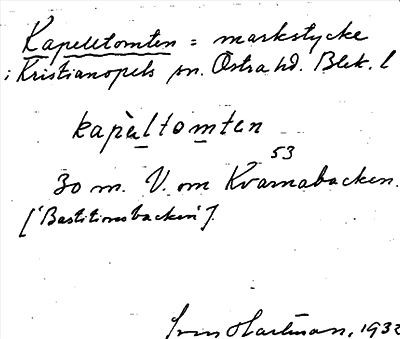 Kapelltomten = markstycke
i Kristianopels sn. Östra hd. Blek. l
kapèltomten
53
30 m. V. om Kvarnabacken.
['Bastionsbacken'].
Hartman, 1932